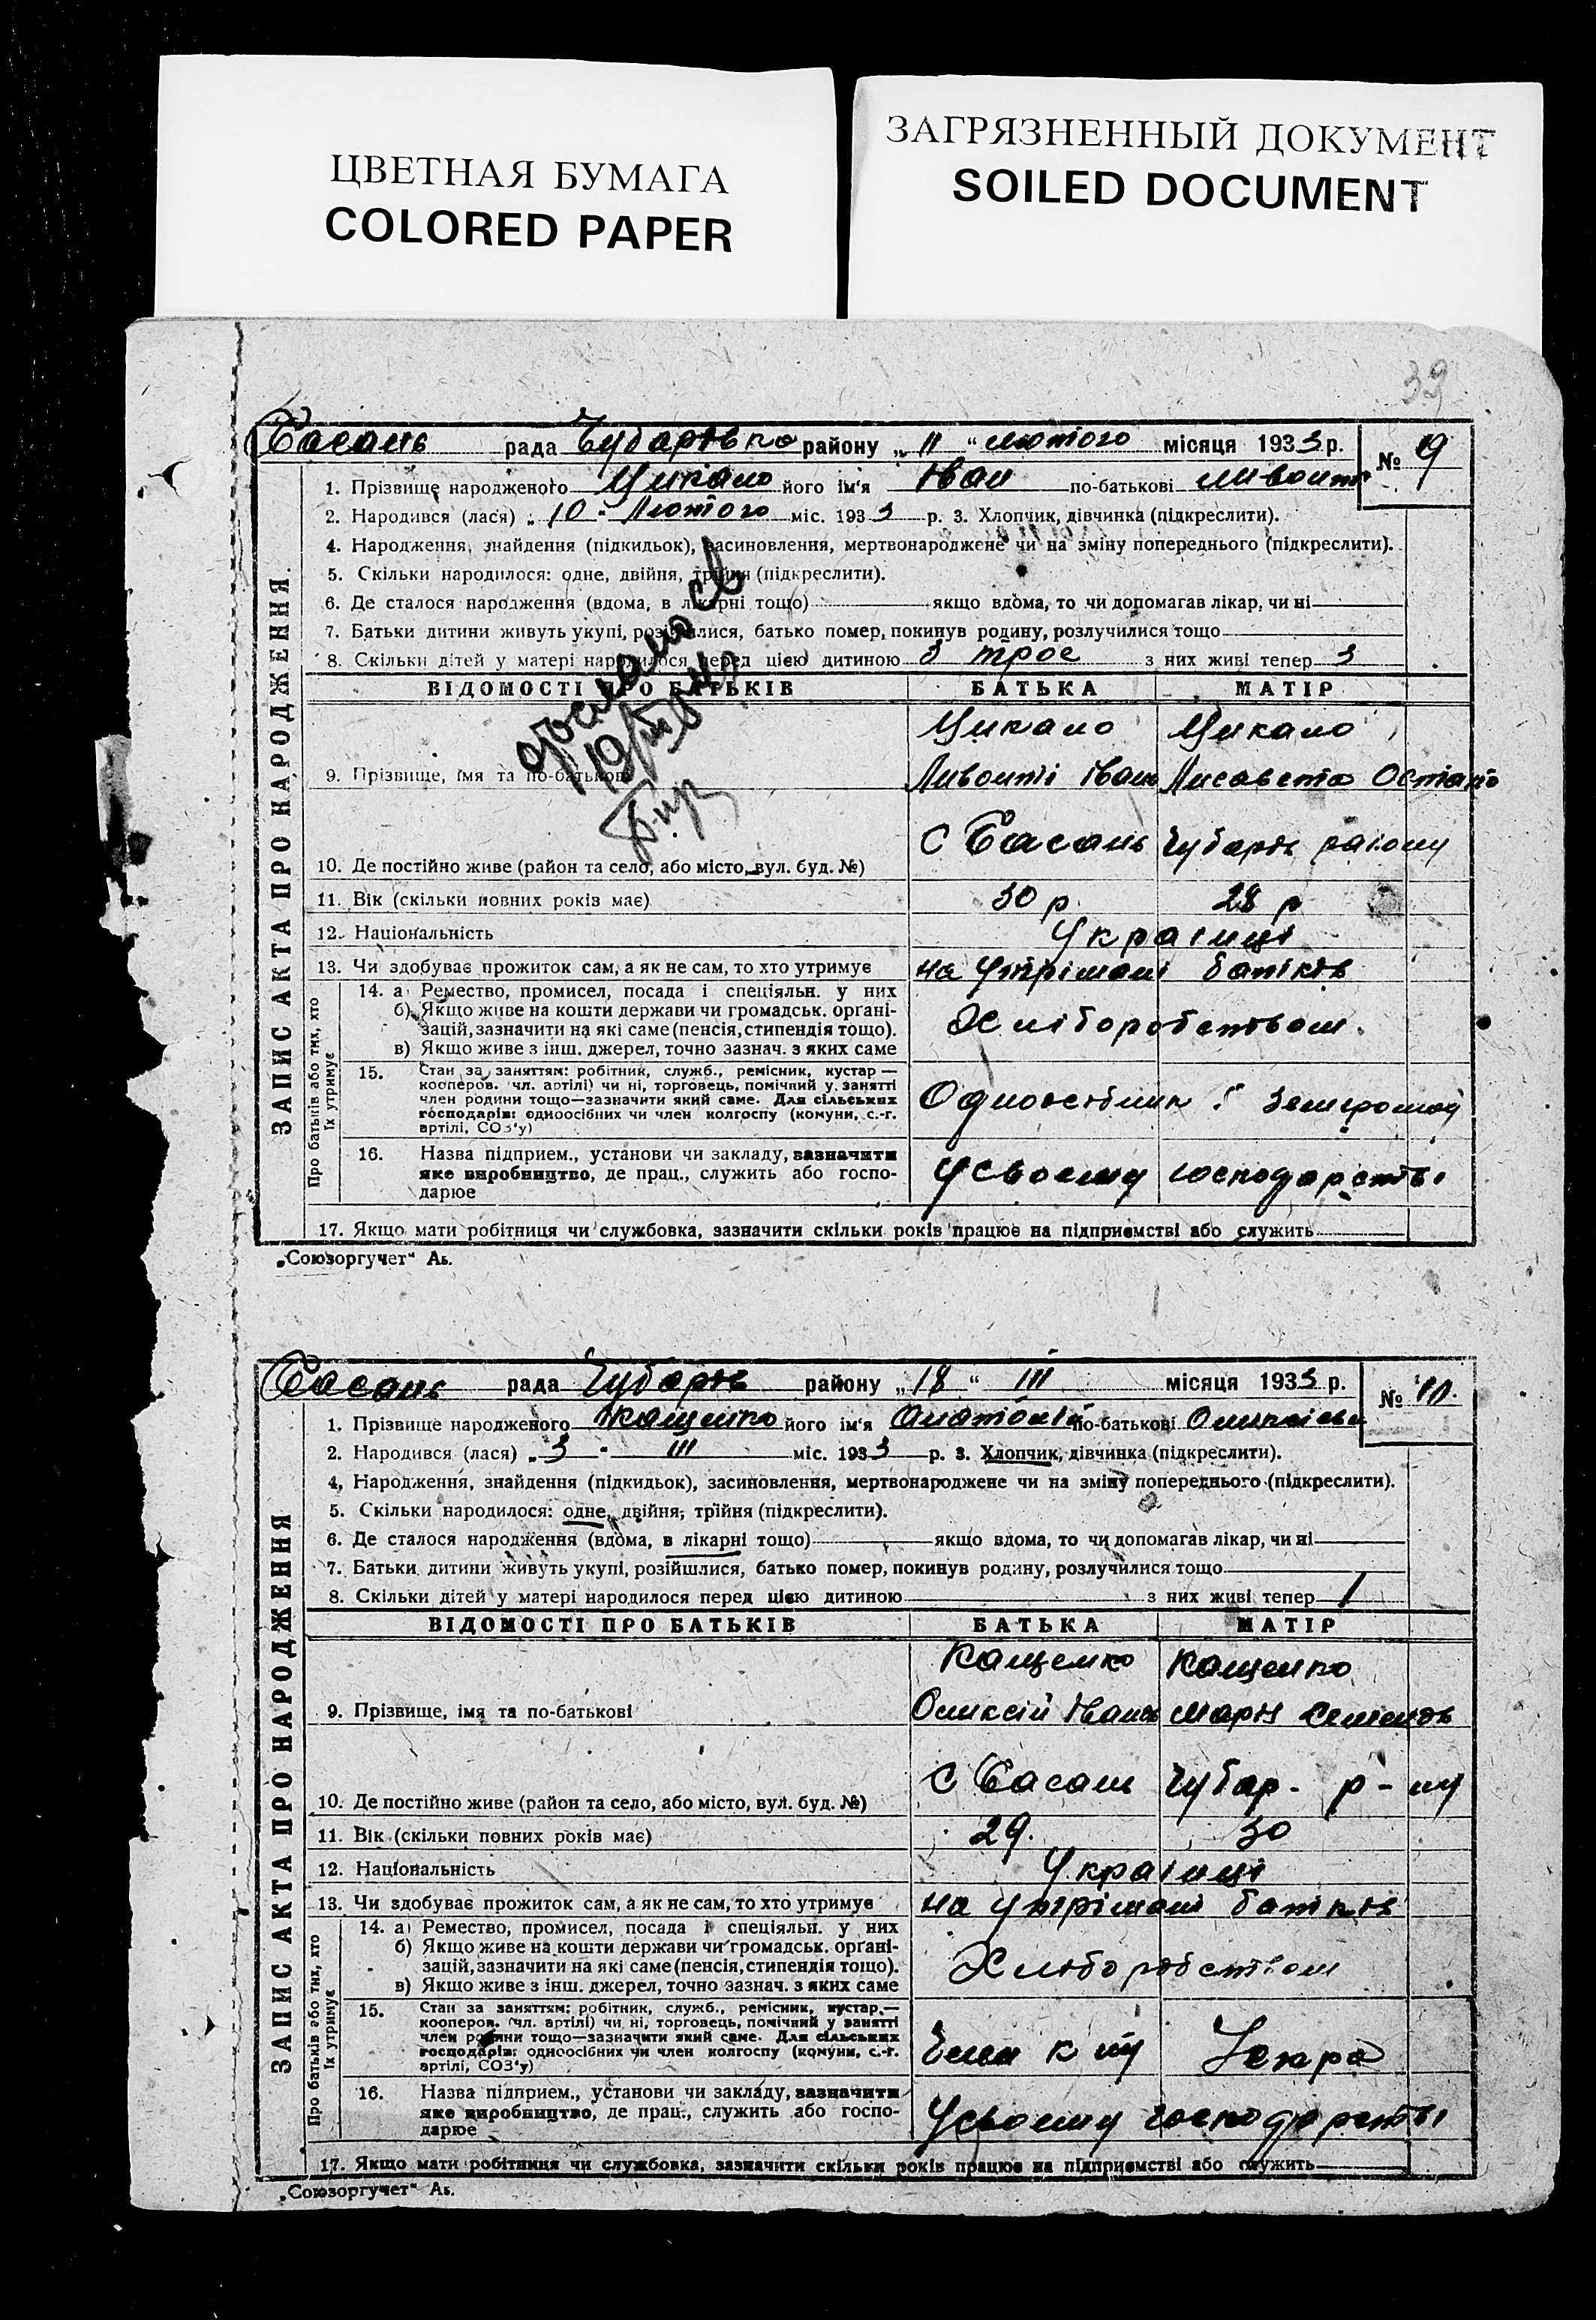 ЦВЕТНАЯ БУМАГА
COLORED PAPER
ЗАГРЯЗНЕННЫЙ ДОКУМЕНТ
SOILED DOCUMENT
39
Басань рада району „11“ лютого місяця 1933 р. № 9
ЗАПИС АКТА ПРО НАРОДЖЕННЯ
1. Прізвище народженого Цикало його ім'я Іван по-батькові
2. Народився (лася) „10“ Лютого міс. 1933 р. 3. Хлопчик, дівчинка (підкреслити).
4. Народження, знайдення (підкидьок), засиновлення, мертвонароджене чи на зміну попереднього (підкреслити).
5. Скільки народилося: одне, двійня, трійня (підкреслити).
6. Де сталося народження (вдома, в лікарні тощо) якщо вдома, то чи допомагав лікар, чи ні
7. Батьки дитини живуть укупі, розійшлися, батько помер, покинув родину, розлучилися тощо
8. Скільки дітей у матері народилося перед цією дитиною 3 трое з них живі тепер 3
ВІДОМОСТІ ПРО БАТЬКІВ БАТЬКА МАТІР
Цикало Цикало
9. Прізвище, імя та по-батькові Ливонті Іван Лисавета
с Басань Чубарів району
10. Де постійно живе (район та село, або місто, вул. буд. №)
11. Вік (скільки повних років має) 30 р. 28 р
12. Національність Украінці
13. Чи здобуває прожиток сам, а як не сам, то хто утримує на утрімані батьків
Про батьків або тих, хто їх утримує
14. а) Ремество, промисел, посада і спеціяльн. у них
б) Якщо живе на кошти держави чи громадськ. органі-
зацій, зазначити на які саме (пенсія, стипендія тощо). Хліборобством.
в) Якщо живе з інш. джерел, точно зазнач. з яких саме
15. Стан за заняттям: робітник, служб., ремісник, кустар—
кооперов. (чл. артілі) чи ні, торговець, помічний у занятті
член родини тощо—зазначити який саме. Для сільських
господарів: одноосібних чи член колгоспу (комуни, с.-г.
артілі, СОЗ'у) Одноосібник
16. Назва підприєм., установи чи закладу, зазначити
яке виробництво, де прац., служить або госпо-
дарює Усвоему господарстві
17. Якщо мати робітниця чи службовка, зазначити скільки років працює на підприємстві або служить
„Союзоргучет“ Аь.
Басань рада Чубарів району „18“ III місяця 1933 р. № 10.
ЗАПИС АКТА ПРО НАРОДЖЕННЯ
1. Прізвище народженого Кащенко його ім'я Анатолій по-батькові
2. Народився (лася) „3“ III міс. 1933 р. 3. Хлопчик, дівчинка (підкреслити).
4. Народження, знайдення (підкидьок), засиновлення, мертвонароджене чи на зміну попереднього (підкреслити).
5. Скільки народилося: одне, двійня, трійня (підкреслити).
6. Де сталося народження (вдома, в лікарні тощо) якщо вдома, то чи допомагав лікар, чи ні
7. Батьки дитини живуть укупі, розійшлися, батько помер, покинув родину, розлучилися тощо
8. Скільки дітей у матері народилося перед цією дитиною з них живі тепер 1
ВІДОМОСТІ ПРО БАТЬКІВ БАТЬКА МАТІР
Кащенко Кащенко
9. Прізвище, імя та по-батькові Оликсій Іванов Марія
с Басань Чубар. р-ну
10. Де постійно живе (район та село, або місто, вул. буд. №)
11. Вік (скільки повних років має) 29. 30
12. Національність Украінці
13. Чи здобуває прожиток сам, а як не сам, то хто утримує на утрімані батьків
Про батьків або тих, хто їх утримує
14. а) Ремество, промисел, посада і спеціяльн. у них
б) Якщо живе на кошти держави чи громадськ. органі-
зацій, зазначити на які саме (пенсія, стипендія тощо). Хліборобством
в) Якщо живе з інш. джерел, точно зазнач. з яких саме
15. Стан за заняттям: робітник, служб., ремісник, кустар,—
кооперов. (чл. артілі) чи ні, торговець, помічний у занятті
член родини тощо—зазначити який саме. Для сільських
господарів: одноосібних чи член колгоспу (комуни, с.-г.
артілі, СОЗ'у) Член
16. Назва підприєм., установи чи закладу, зазначити
яке виробництво, де прац., служить або госпо-
дарює Усвоему господарстві
17. Якщо мати робітниця чи службовка, зазначити скільки років працює на підприємстві або служить
„Союзоргучет“ Аь.